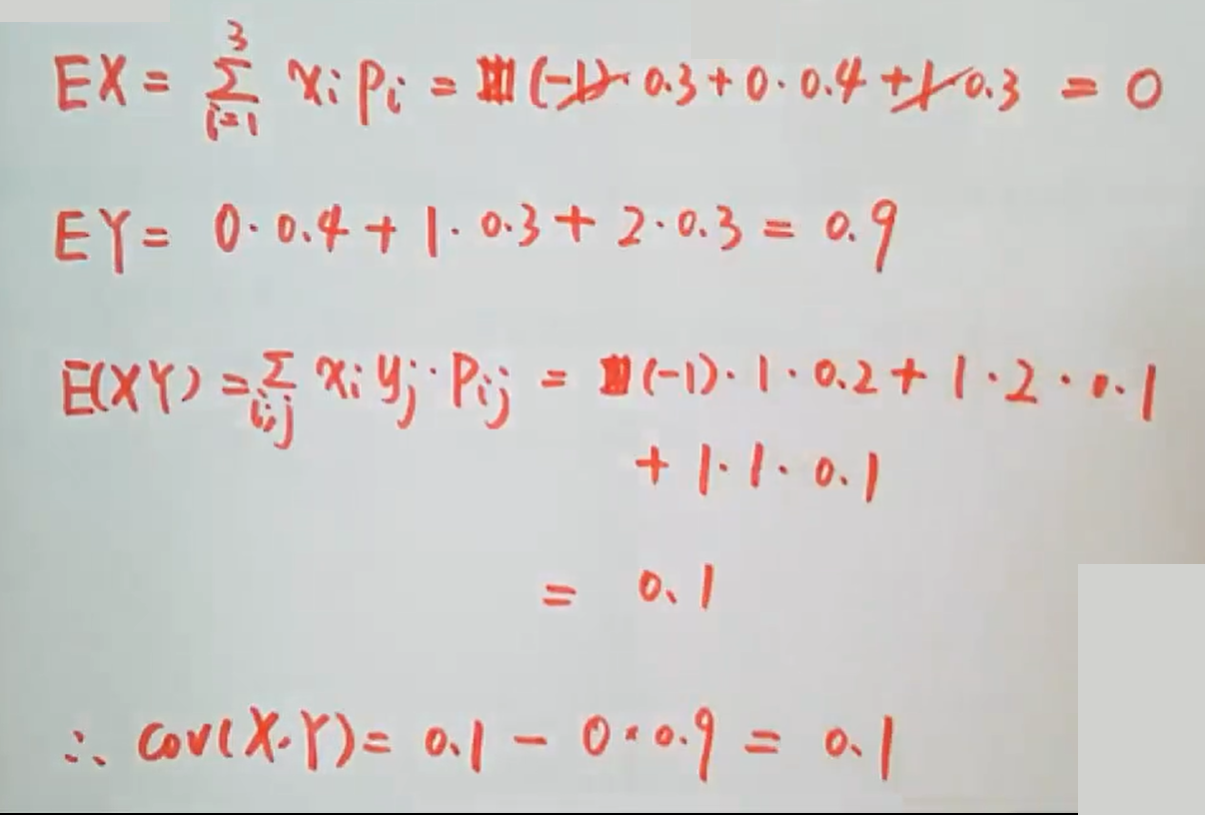 EX = \sum_{i=1}^{3} x_i p_i = (-1)·0.3 + 0·0.4 + 1·0.3 = 0
EY = 0·0.4 + 1·0.3 + 2·0.3 = 0.9
E(XY) = \sum_{i,j} x_i y_j · P_{ij} = (-1)·1·0.2 + 1·2·0.1
+ 1·1·0.1
= 0.1
∴ cov(X·Y) = 0.1 - 0×0.9 = 0.1